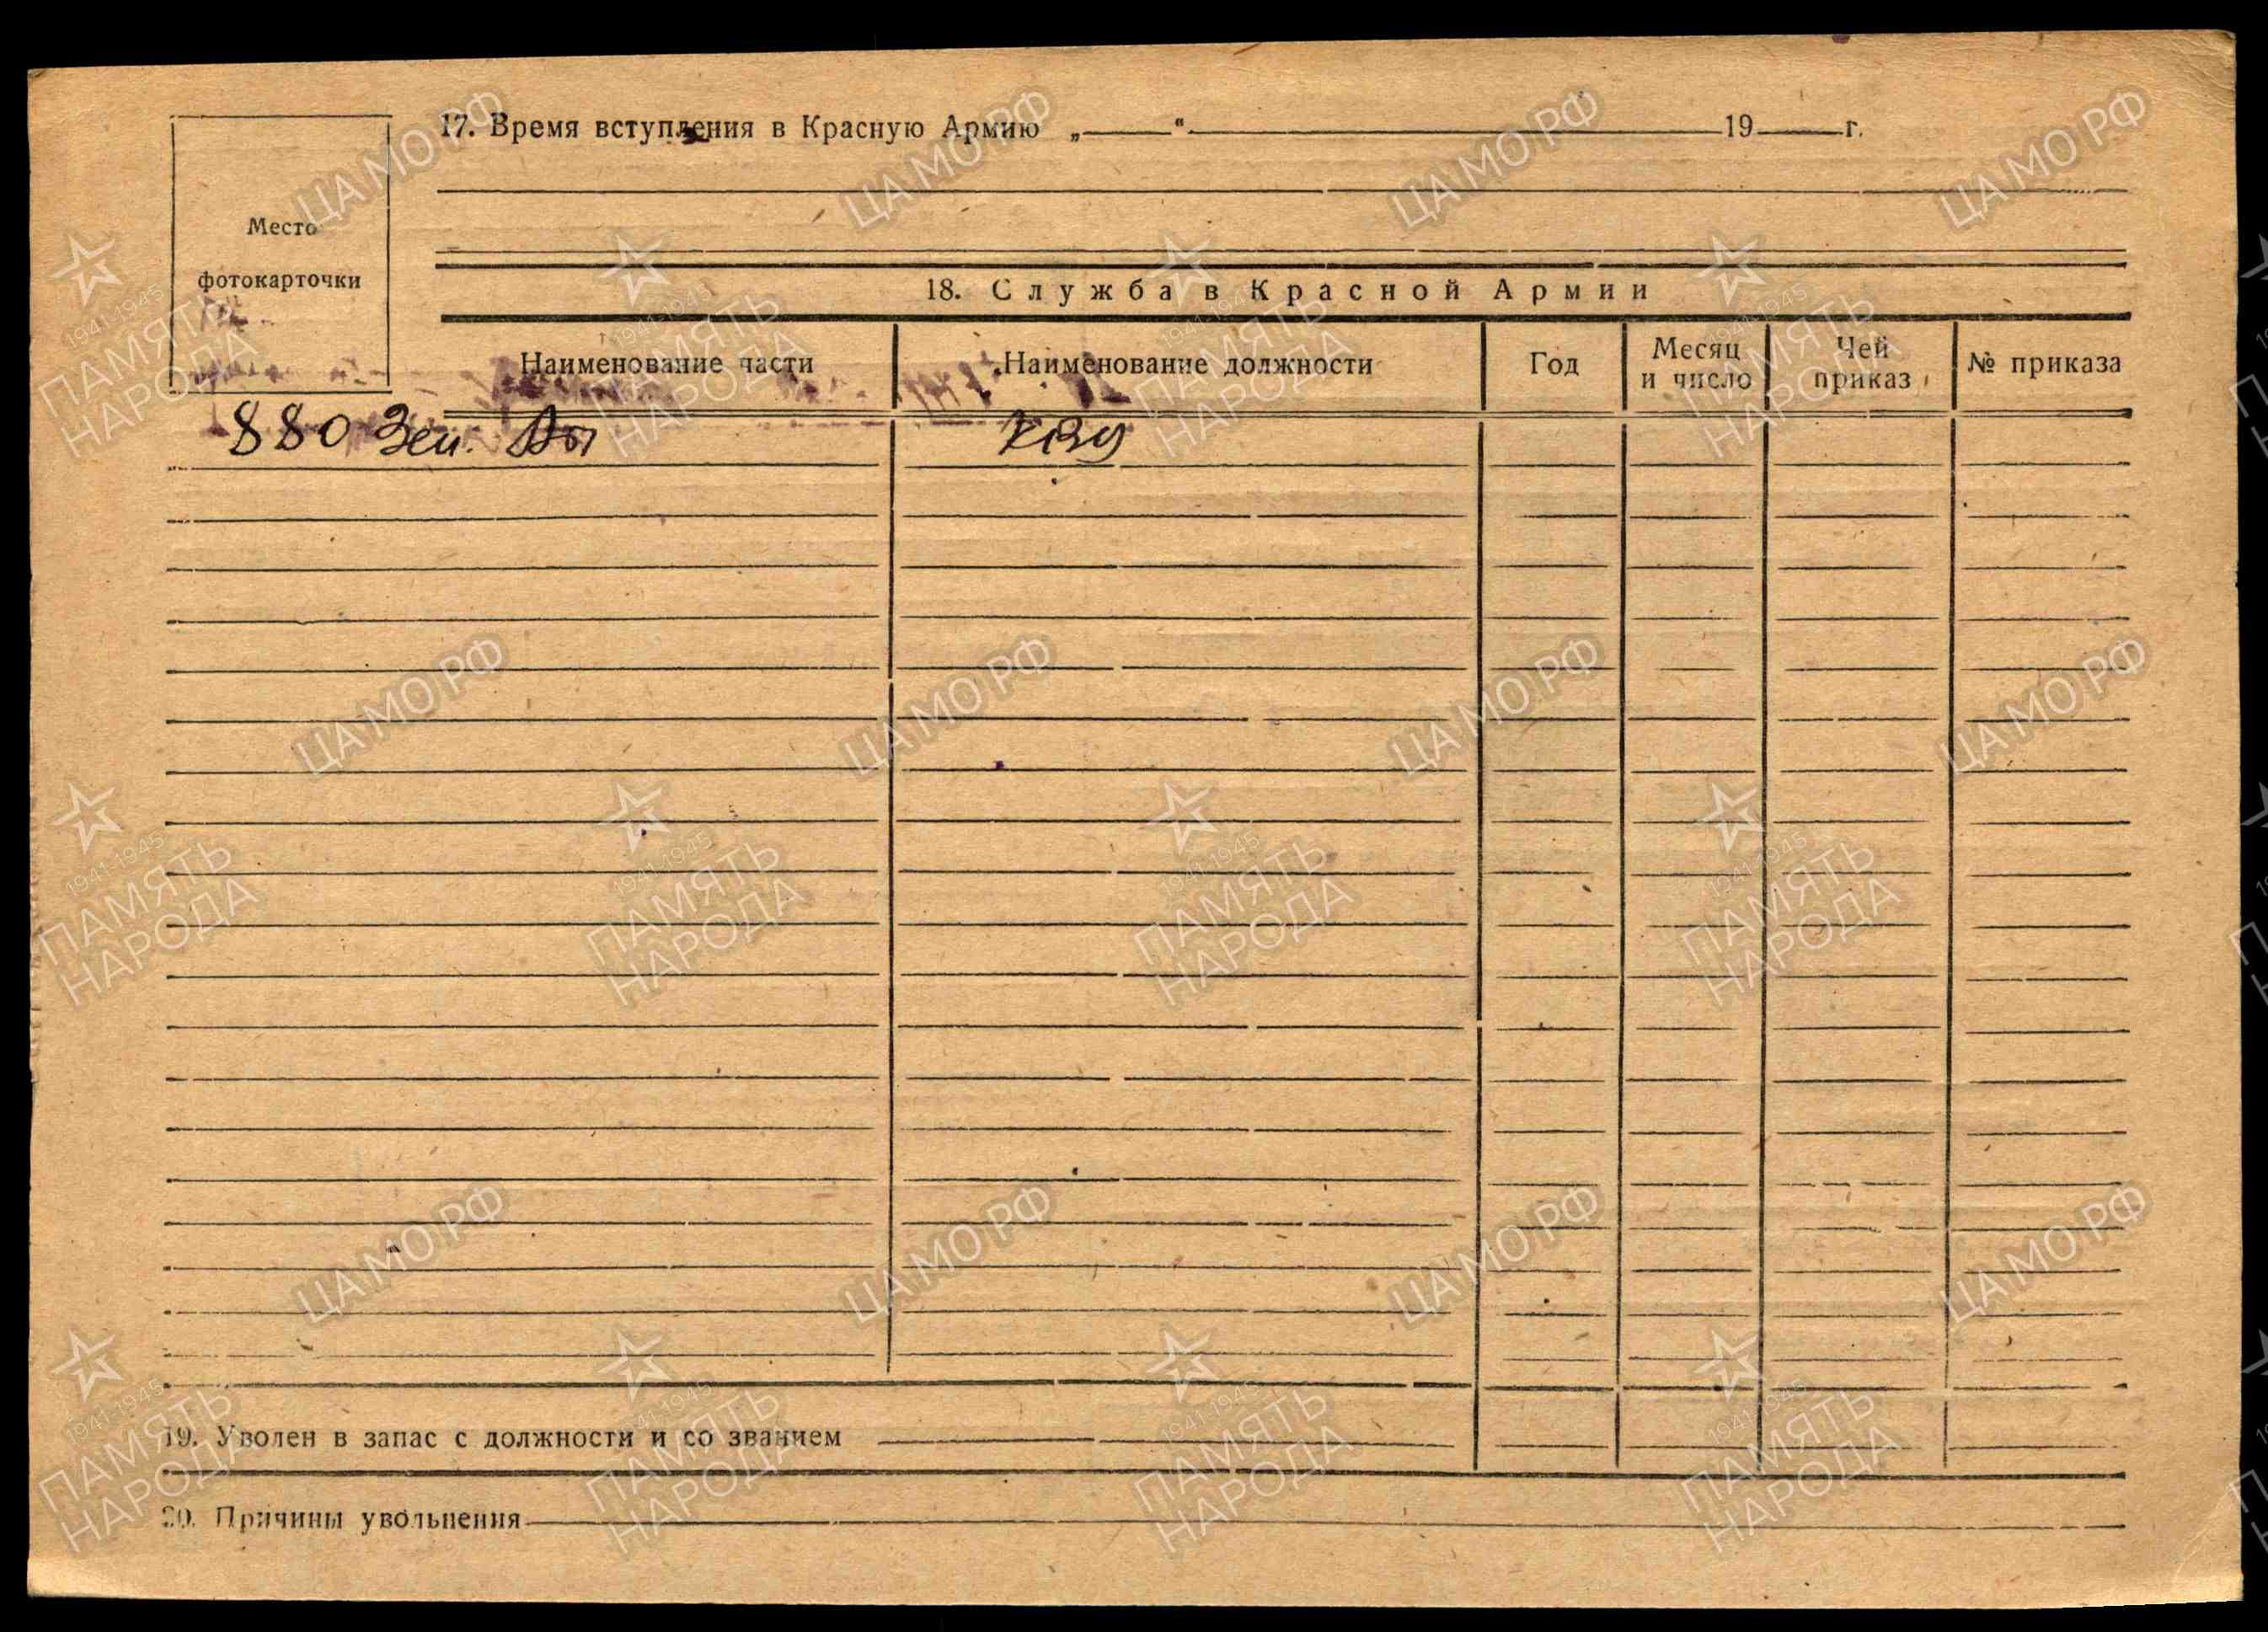 17. Время вступления в Красную Армию „ “ 19 г.
Место
фотокарточки
18. Служба в Красной Армии
Наименование части
Наименование должности
Год
Месяц
и число
Чей
приказ
№ приказа
880 Зен.
19. Уволен в запас с должности и со званием
20. Причины увольнения
ЦАМО РФ
1941-1945
ПАМЯТЬ
НАРОДА